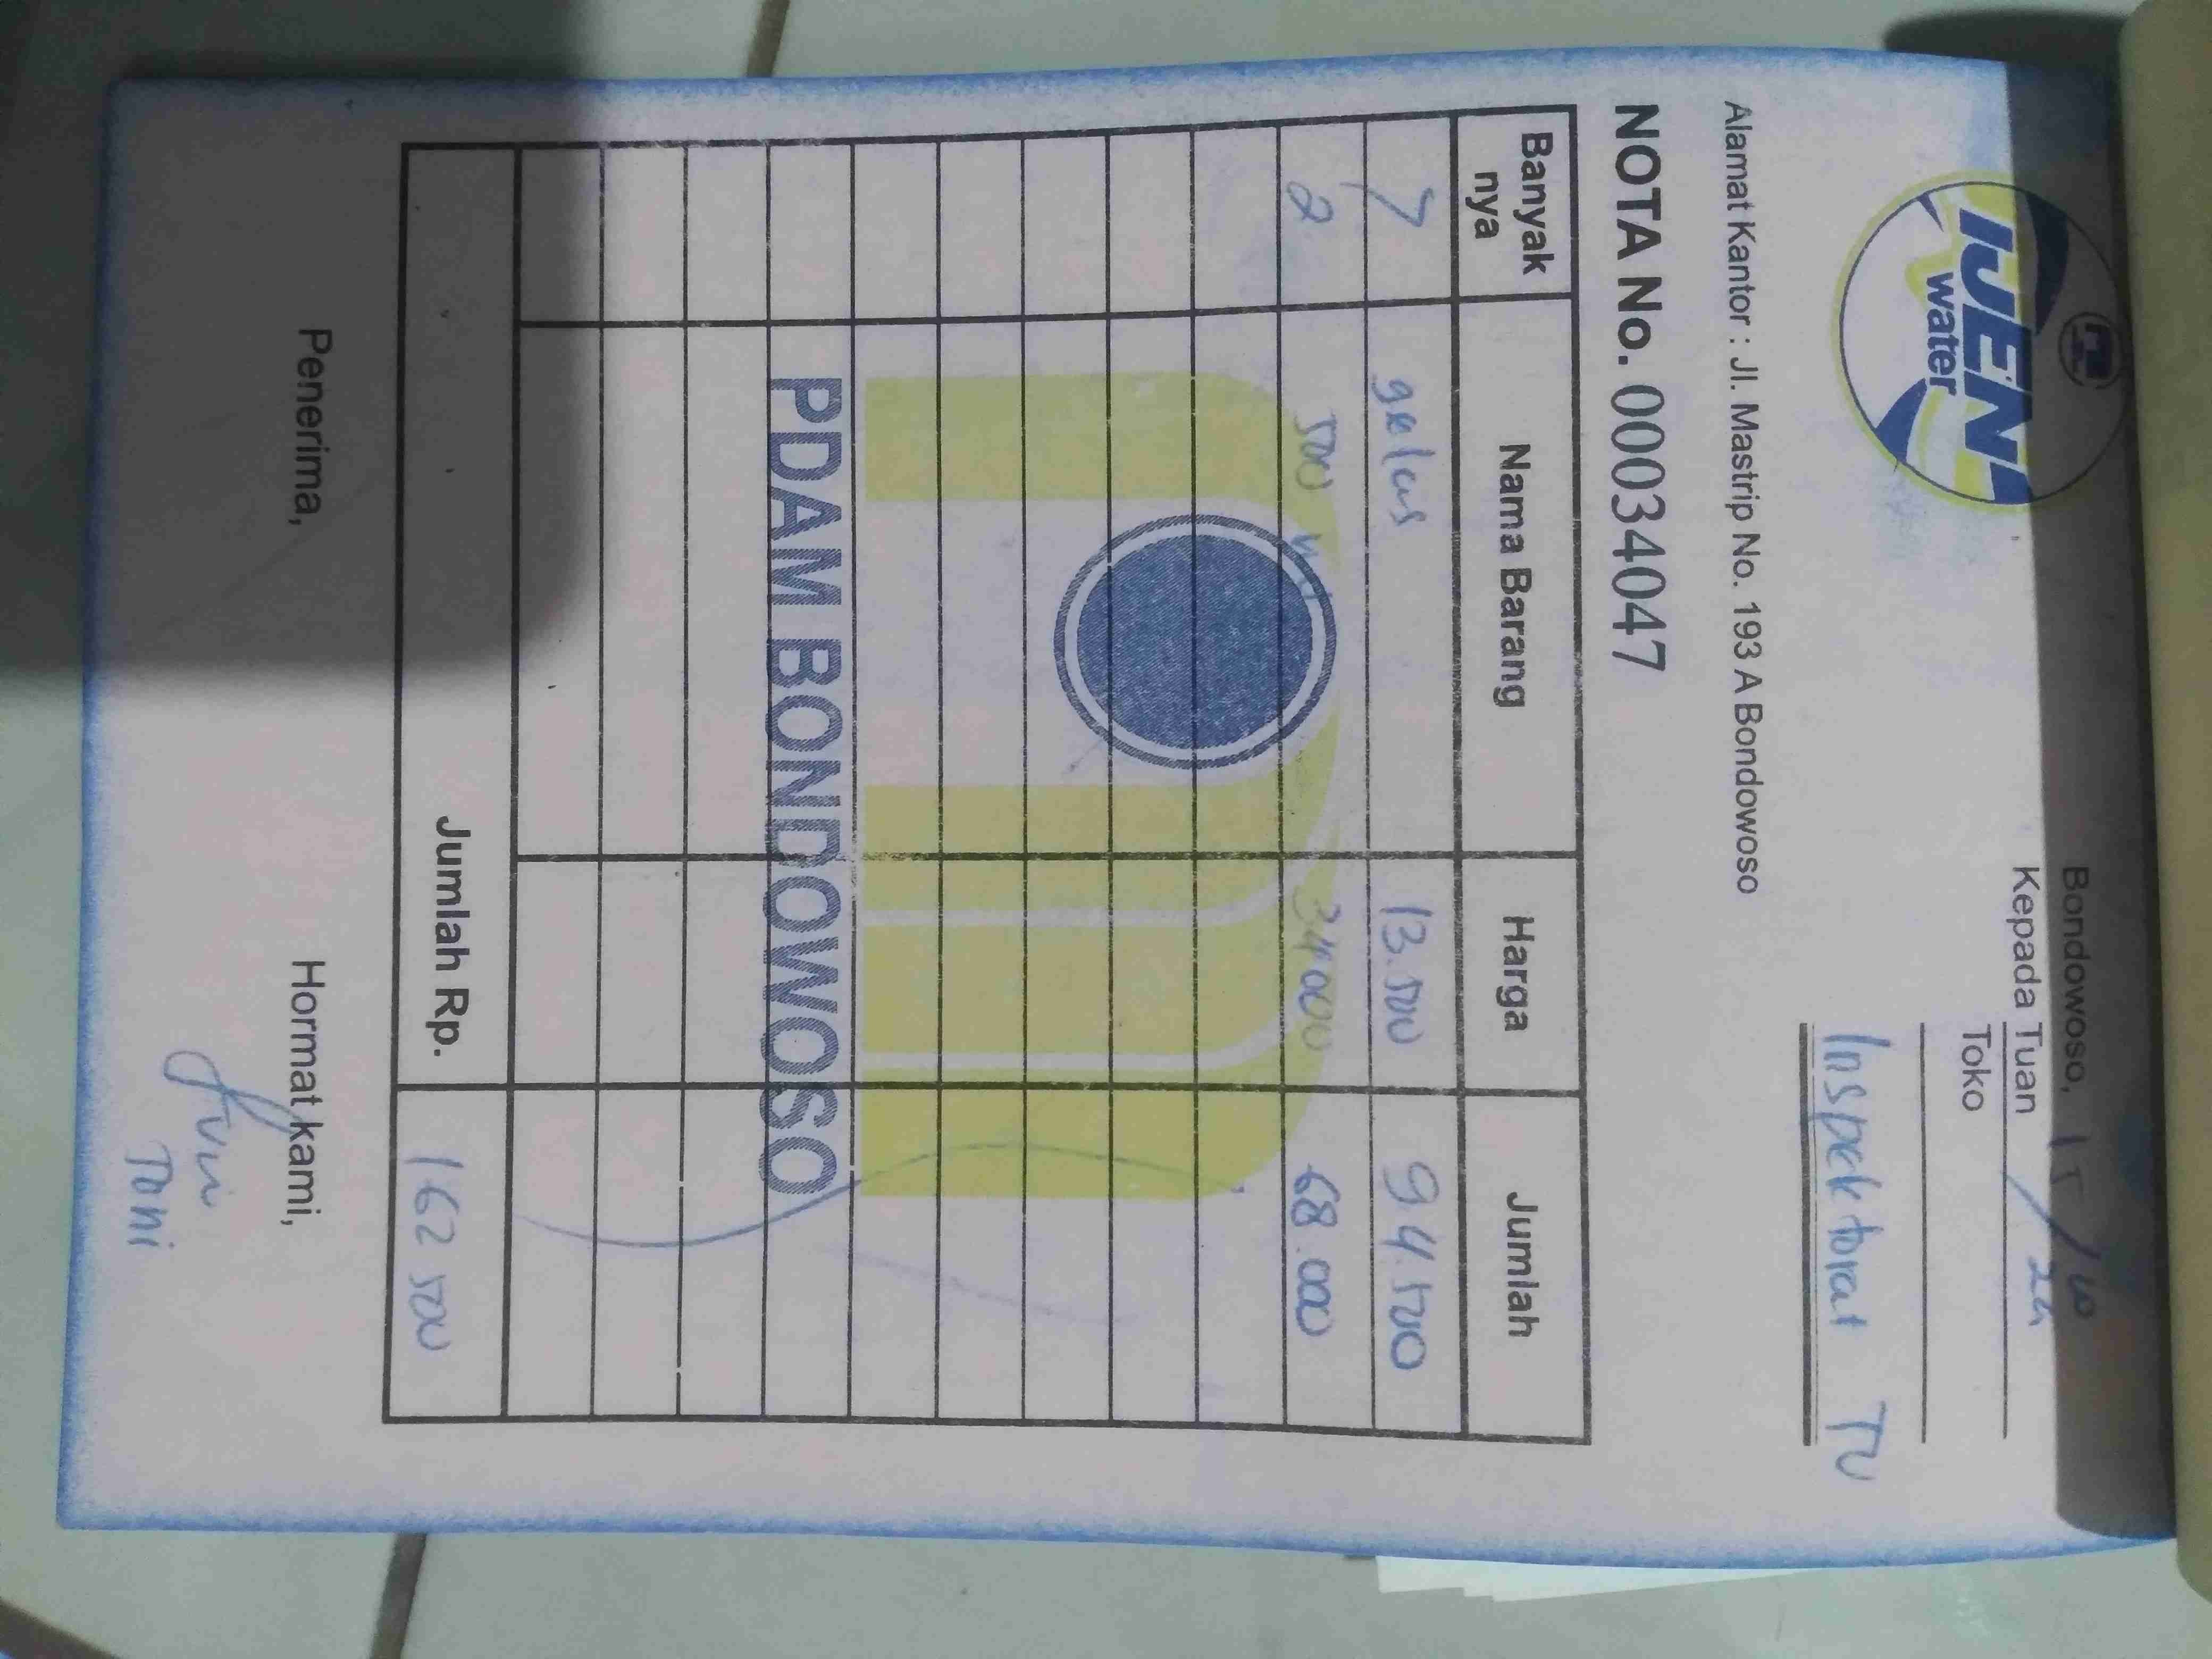 IJEN
water
Bondowoso, 15 / 10
Kepada Tuan / 24
Toko
Inspektorat TU
Alamat Kantor : Jl. Mastrip No. 193 A Bondowoso
NOTA No. 00034047
Banyak nya Nama Barang Harga Jumlah
7 gelas 13.500 94.500
2 500 ml 34.000 68.000
PDAM BONDOWOSO
Jumlah Rp. 162 500
Penerima, Hormat kami,
Toni